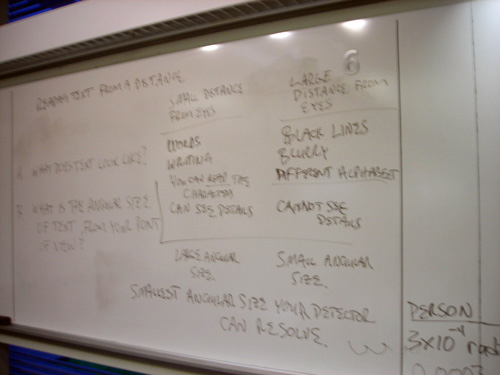 READING TEXT FROM A DISTANCE
6
SMALL DISTANCE
FROM EYES
LARGE
DISTANCE FROM
EYES
A. WHAT DOES TEXT LOOK LIKE?
WORDS
WRITING
YOU CAN READ THE
CHARACTERS
CAN SEE DETAILS
BLACK LINES
BLURRY
DIFFERENT ALPHABET
CANNOT SEE
DETAILS
B. WHAT IS THE ANGULAR SIZE
OF TEXT, FROM YOUR POINT
OF VIEW?
LARGE ANGULAR
SIZE.
SMALL ANGULAR
SIZE.
SMALLEST ANGULAR SIZE YOUR DETECTOR
CAN RESOLVE.
PERSON
3x10⁻⁴ rad
0.0003